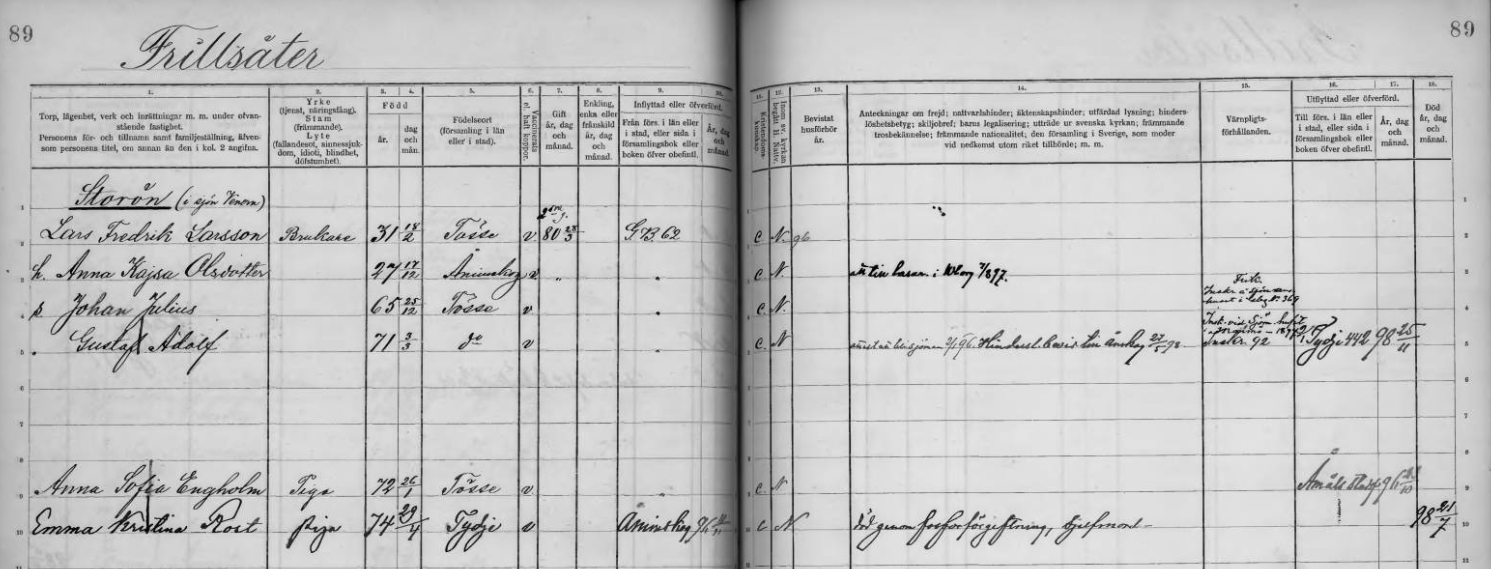 89
89
Frillsäter
1.
Torp, lägenhet, verk och inrättningar m. m. under ofvan-
stående fastighet.
Personens för- och tillnamn samt familjeställning, äfven-
som personens titel, om annan än den i kol. 2 angifna.
2.
Yrke
(tjenst, näringsfång).
Stam
(främmande).
Lyte
(fallandesot, sinnessjuk-
dom, idioti, blindhet,
döfstumhet).
3. 4.
Född
år.
dag
och
mån.
5.
Födelseort
(församling i län
eller i stad).
6.
Vaccinerats
el. haft koppor.
7.
Gift
år, dag
och
månad.
8.
Enkling,
enka eller
frånskild
år, dag
och
månad.
9. 10.
Inflyttad eller öfverförd.
Från förs. i län eller
i stad, eller sida i
församlingsbok eller
boken öfver obefintl.
År, dag
och
månad.
11.
Kristendoms-
kunskap.
12.
Inom sv. kyrkan
begått H. Nattv.
13.
Bevistat
husförhör
år.
14.
Anteckningar om frejd; nattvardshinder; äktenskapshinder; utfärdad lysning; hinders-
löshetsbetyg; skiljobref; barns legalisering; utträde ur svenska kyrkan; främmande
trosbekännelse; främmande nationalitet; den församling i Sverige, som moder
vid nedkomst utom riket tillhörde; m. m.
15.
Värnpligts-
förhållanden.
16. 17.
Utflyttad eller öfverförd.
Till förs. i län eller
i stad, eller sida i
församlingsbok eller
boken öfver obefintl.
År, dag
och
månad.
18.
Död
år, dag
och
månad.
1 Storön (i sjön Venern) 1
2 Lars Fredrik Larsson Brukare 31 18/2 Tösse v 80 28/3 G.B. 62 C N. 96 2
3 h. Anna Kajsa Olsdotter 27 17/12 Ånimskog v " C N. 3
4 s Johan Julius 65 25/12 Tösse v C N. 4
5 Gustaf Adolf 71 3/3 do v C. N Inskr. 92 Tydje 442 98 25/11 5
6 6
7 7
8 8
9 Anna Sofia Engholm Piga 72 26/1 Tösse v C. N Åmåls 9
10 Emma Kristina Rost piga 74 29/4 Tydje v Ånimskog C N död genom fosforförgiftning, sjelfmord – 98 21/7 10
11 11